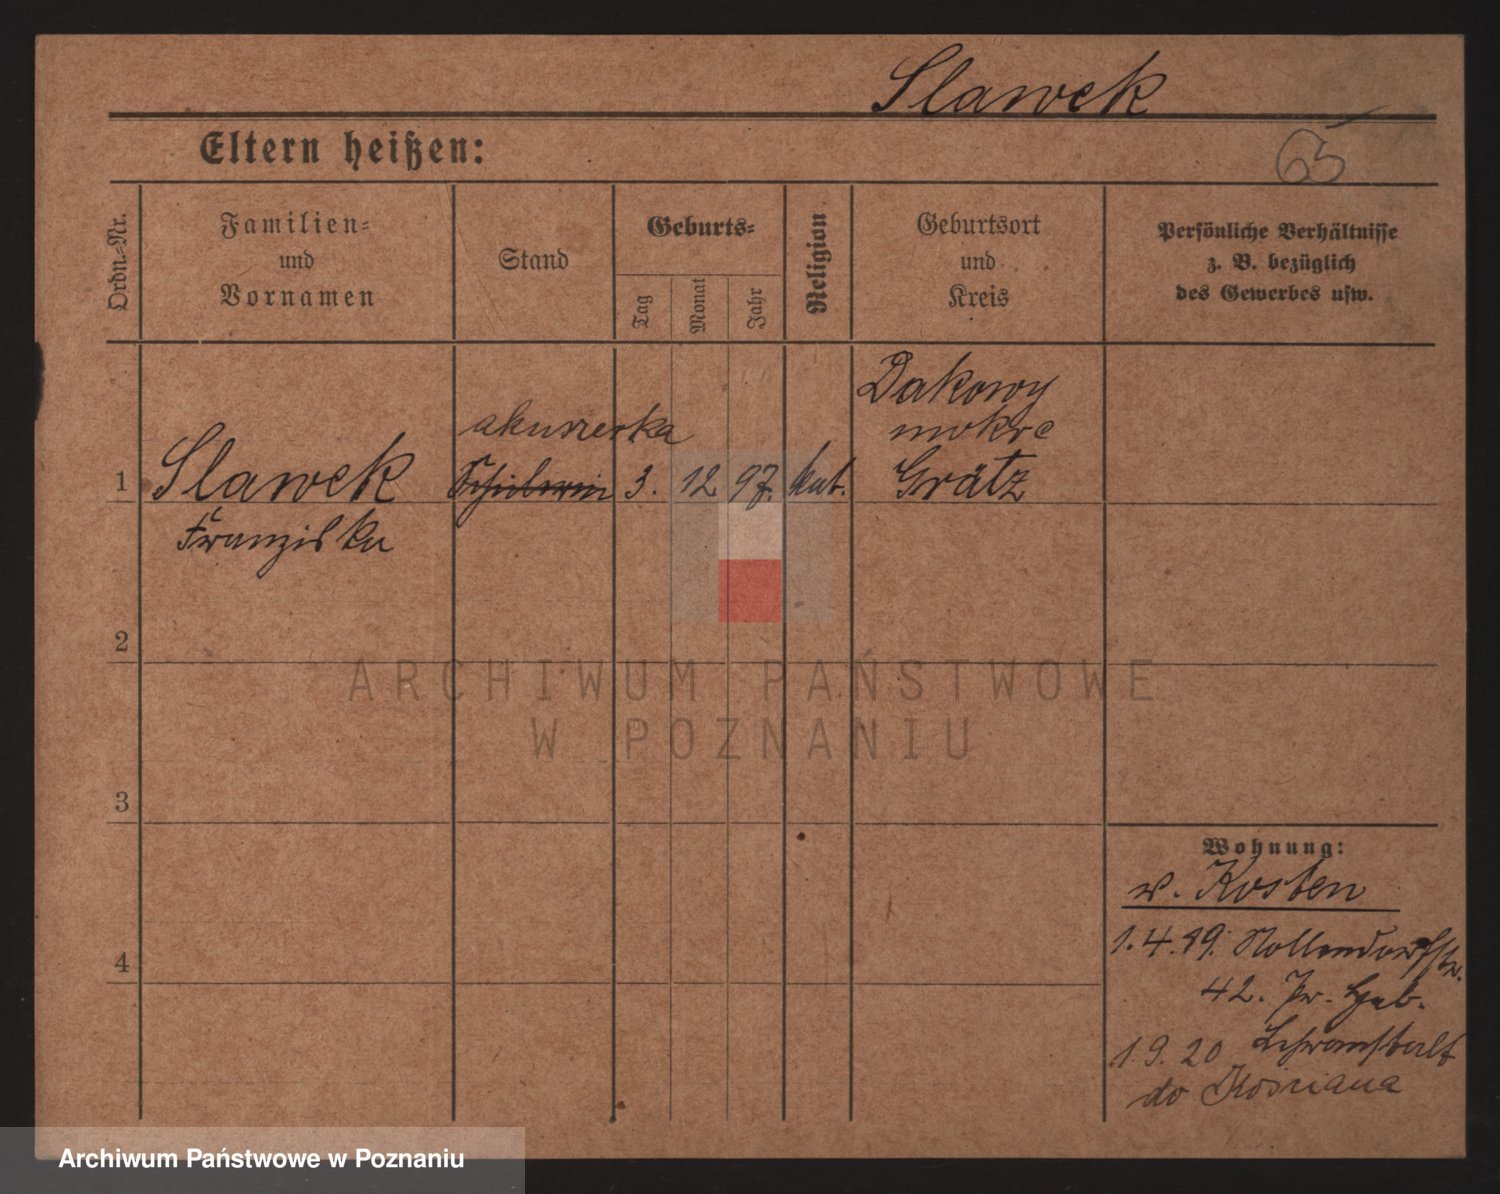 Slawek
Eltern heißen:
65
Ordn.-Nr.
Familien-
und
Vornamen
Stand
Geburts-
Tag
Monat
Jahr
Religion
Geburtsort
und
Kreis
Persönliche Verhältnisse
z. B. bezüglich
des Gewerbes usw.
Dakowy
akuszerka
mokre
1 Slawek Schülerin 3. 12. 97. kat. Grätz
Franziska
2
ARCHIWUM PAŃSTWOWE
W POZNANIU
3
Wohnung:
v. Kosten
1.4.19. Nollendorfstr.
4
42. Pr. Heb.
Lehranstalt
1.9.20
do Kościana
Archiwum Państwowe w Poznaniu